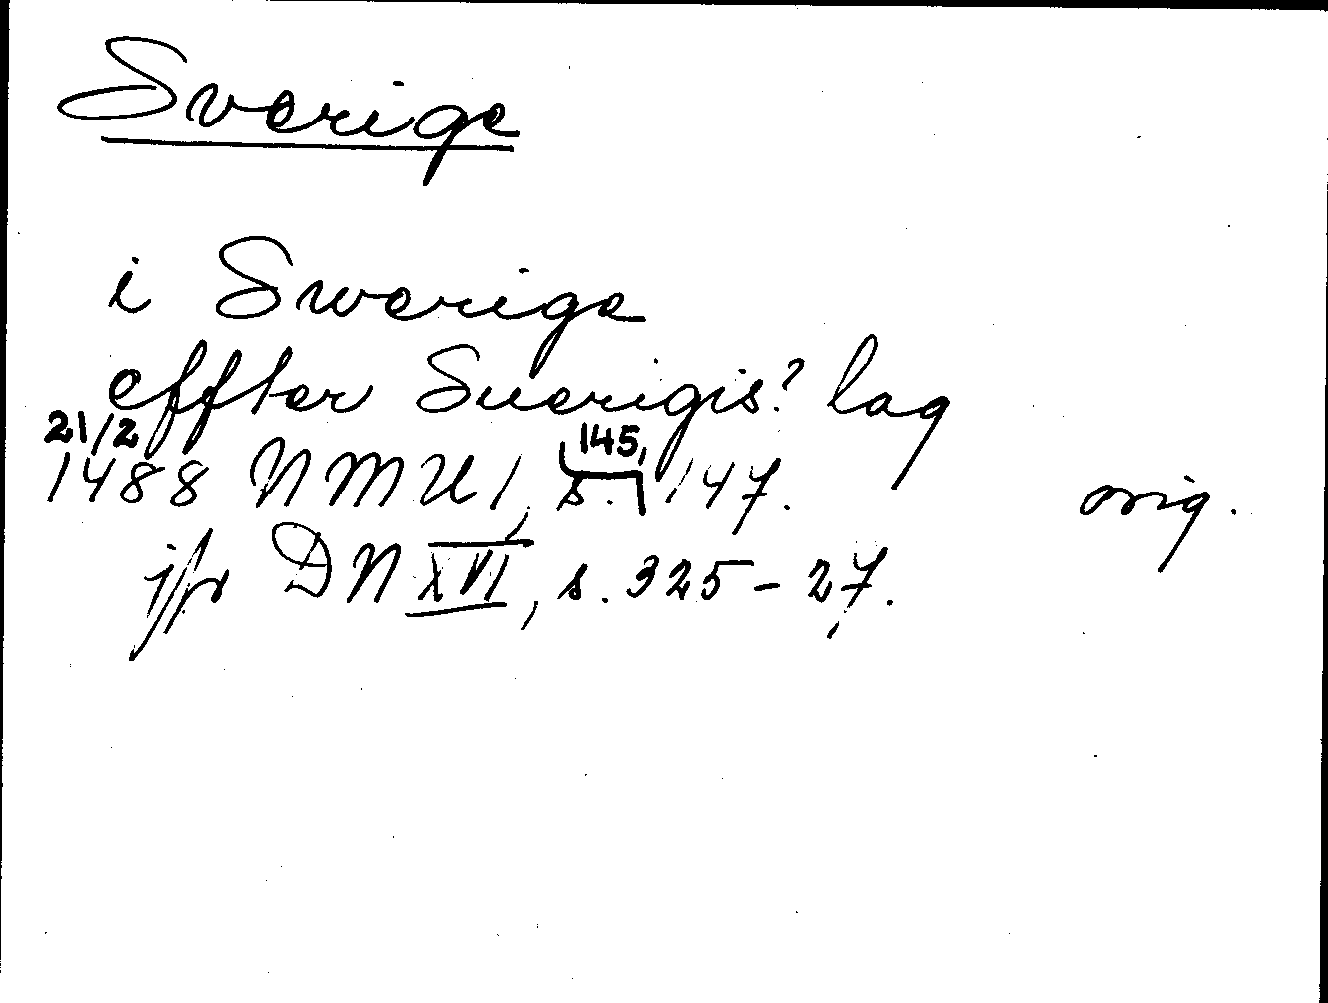 Sverige
i Swerige
effter Suerigis? lag
21/2 1488 NMU 1, s. 145, 147. orig.
jfr DN XVI, s. 325-27.